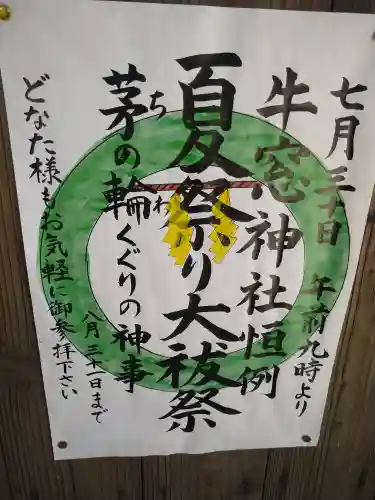 七月三十日 午前九時より
牛窓神社恒例
夏祭り大祓祭
茅の輪くぐりの神事
ちわ
八月三十一日まで
どなた様もお気軽に御参拝下さい